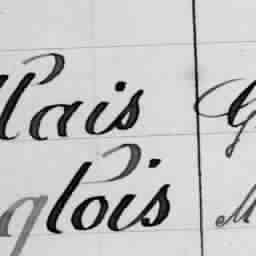 lais G
glois M